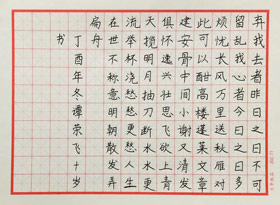 弃我去者昨日之日不可
留乱我心者今日之日多
烦忧长风万里送秋雁对
此可以酣高楼蓬莱文章
建安骨中间小谢又清发
俱怀逸兴壮思飞欲上青
天揽明月抽刀断水水更
流举杯浇愁愁更愁人生
在世不称意明朝散发弄
扁舟
丁酉年冬谭荣飞十岁
书